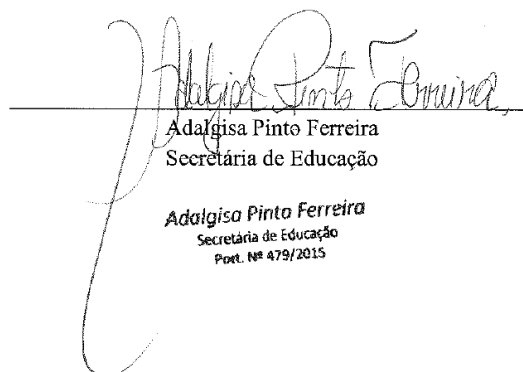 Adalgisa Pinto Ferreira
Adalgisa Pinto Ferreira
Secretária de Educação
Adalgisa Pinto Ferreira
Secretária de Educação
Port. Nº 479/2015